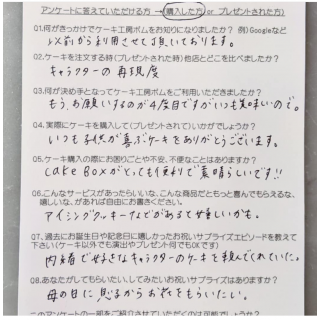 アンケートに答えていただける方 → 購入した方 or プレゼントされた方)
Q1.何がきっかけでケーキ工房ボムをお知りになりましたか? 例) Googleなど
以前から利用させて頂いております。
Q2.ケーキを注文する時(プレゼントされた時)他店とどこを比べましたか?
キャラクターの再現度
Q3.何が決め手となってケーキ工房ボムをご利用いただきましたか?
もう、お願いするのが4度目ですがいつも美味いので。
Q4.実際にケーキを購入して(プレゼントされて)いかがでしょうか?
いつも子供が喜ぶケーキをありがとうございます。
Q5.ケーキ購入の際にお困りごとや不安、不便なことはありますか?
cake Boxがとっても便利で素晴らしいです!!
Q6.こんなサービスがあったらいいな、こんな商品だともっと喜んでもらえるな、
嬉しいな、があれば自由にお書きください。
アイシングクッキーなどがあると嬉しいかも。
Q7.過去にお誕生日や記念日に嬉しかったお祝いサプライズエピソードを教えて
下さい(ケーキ以外でも演出やプレゼント何でもOKです)
内緒で好きなキャラクターのケーキを頼んでくれていた。
Q8.あなたがしてもらいたい、してみたいお祝いサプライズはありますか?
母の日に息子からお花をもらいたい。
このアンケートの一部をご紹介させていただくのは可能でしょうか?